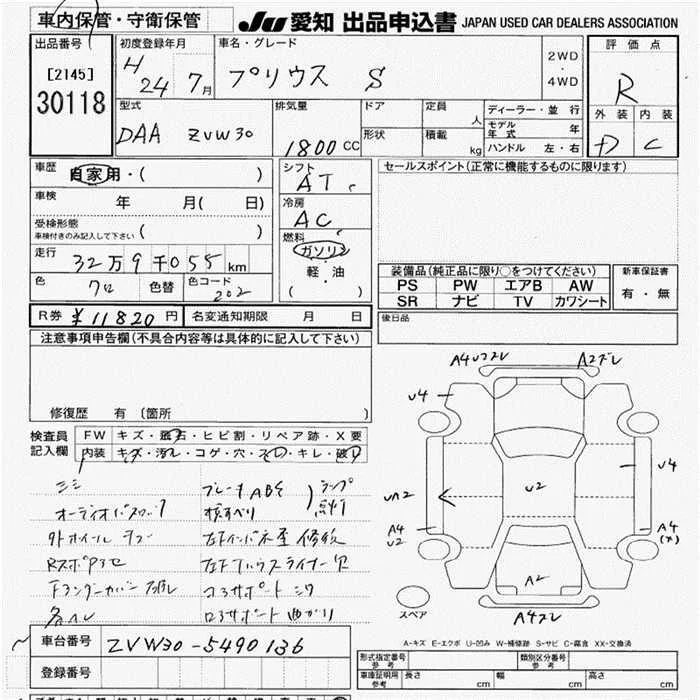 車内保管・守衛保管
JU 愛知 出品申込書 JAPAN USED CAR DEALERS ASSOCIATION
出品番号
[2145]
30118
初度登録年月
H
24 7月
車名・グレード
プリウス S
2WD
・
4WD
評価点
R
外装 内装
D C
型式
DAA ZVW30
排気量
1800 CC
ドア
形状
定員
人
積載
kg
ディーラー・並行
モデル
年式 年
ハンドル 左・右
車歴
自家用・( )
車検
年 月( 日)
受検形態
車検付きのみ記入して下さい ( )
走行
32万9千055 km
色
クロ
色替
色コード
202
シフト
AT
冷房
AC
燃料
ガソリン
・
軽・油
( )
セールスポイント(正常に機能するものに限ります)
装備品(純正品に限り○をつけてください)
PS PW エアB AW
SR ナビ TV カワシート
新車保証書
有・無
R券 ¥11820円
名変通知期限 月 日
後日品
注意事項申告欄(不具合内容等は具体的に記入して下さい)
修復歴 有 〔箇所 〕
検査員
記入欄
FW キズ・飛石・ヒビ割・リペア跡・X要
内装 キズ・汚レ・コゲ・穴・スレ・キレ・破レ
シミ
ブレーキABS ランプ
点灯
外ホイール
左インパネ歪 修復
Rスポアセ
コアサポート
コアサポート 曲がり
車台番号 ZVW30-5490136
登録番号
A4 A2
U4
U4
U2
UA2
A4
U2
A4
A2
スペア
A-キズ E-エクボ U-凹み W-補修跡 S-サビ C-腐食 XX-交換済
形式指定番号
参考
類別区分番号
参考
車庫証明用
参考
長さ cm 幅 cm 高さ cm